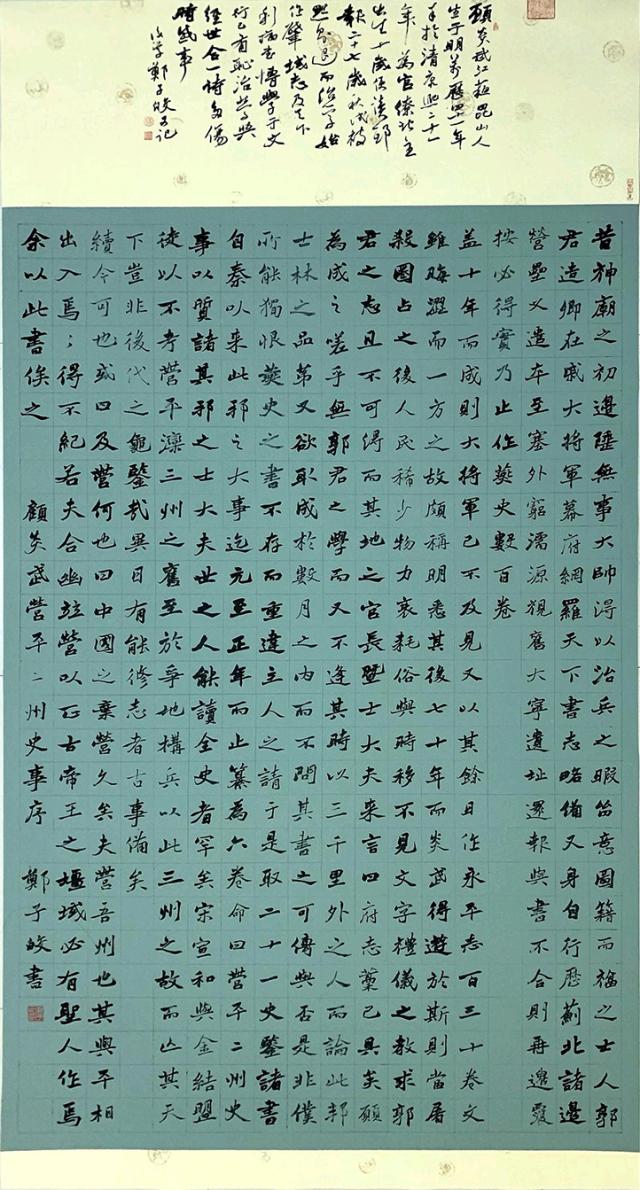 顧炎武江蘇昆山人
生于明萬曆四十一年
卒於清康熙二十一
年為官僚地主
出生十歲使讀邸
報二十七歲秋試被
退而治學始
作肇域志及天下
利病書博學于文
行己有恥治學與
經世合一詩多傷
時感事
後學鄭子皎又記
昔神廟之初邊陲無事大帥得以治兵之暇留意圖籍而福之士人郭
君造卿在戚大將軍幕府網羅天下書志略備又身自行歷薊北諸邊
營壘又遣卒至塞外窮濡源視舊大寧遺址還報與書不合則再遣覆
按必得實乃止作燕史數百卷
蓋十年而成則大將軍已不及見又以其餘日作永平志百三十卷文
雖晦澀而一方之故頗稱明悉其後七十年而炎武得遊於斯則當屠
殺圈占之後人民稀少物力衰耗俗與時移不見文字禮儀之教求郭
君之志且不可得而其地之官長暨士大夫來言曰府志藁已具矣願
為成之嗟乎無郭君之學而又不逢其時以三千里外之人而論此邦
士林之品第又欲取成於數月之內而不問其書之可傳與否是非僕
所能獨恨燕史之書不存而重違主人之請于是取二十一史鑒諸書
自秦以來此邦之大事迄元至正年而止纂為六卷命曰營平二州史
事以質諸其邦之士大夫世之人能讀全史者罕矣宋宣和與金結盟
徒以不考營平灤三州之舊至於爭地構兵以此三州之故而亡其天
下豈非後代之龜鑒哉異日有能修志者古事備矣
續今可也或曰及營何也曰中國之棄營久矣夫營吾州也其與平相
出入焉焉得不紀若夫合幽並營以正古帝王之壃域必有聖人作焉
余以此書俟之 顧炎武營平二州史事序 鄭子皎書